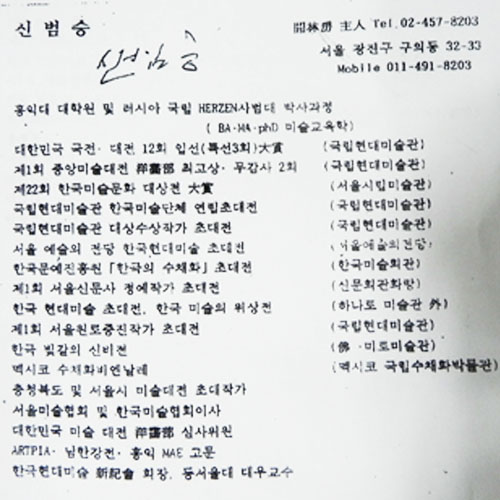 신범승
開林房 主人 Tel. 02-457-8203
서울 광진구 구의동 32-33
Mobile 011-491-8203
홍익대 대학원 및 러시아 국립 HERZEN사범대 박사과정
( BA·MA·phD 미술교육학)
대한민국 국전· 대전 12회 입선(특선3회)大賞 (국립현대미술관)
제1회 중앙미술대전 洋畵部 최고상· 무감사 2회 (국립현대미술관)
제22회 한국미술문화 대상전 大賞 (서울시립미술관)
국립현대미술관 한국미술단체 연립초대전 (국립현대미술관)
국립현대미술관 대상수상작가 초대전 (국립현대미술관)
서울 예술의 전당 한국현대미술 초대전 (서울예술의전당)
한국문예진흥원「한국의 수채화」초대전 (한국미술회관)
제1회 서울신문사 정예작가 초대전 (신문회관화랑)
한국 현대미술 초대전, 한국 미술의 위상전 (하나로 미술관 外)
제1회 서울원로중진작가 초대전 (국립현대미술관)
한국 빛갈의 신비전 (佛 ·미로미술관)
멕시코 수채화비엔날레 (멕시코 국립수채화박물관)
충청북도 및 서울시 미술대전 초대작가
서울미술협회 및 한국미술협회이사
대한민국 미술 대전 洋畵部 심사위원
ARTPIA· 남한강전· 홍익 MAE 고문
한국현대미술 新記會 회장, 동서울대 대우교수